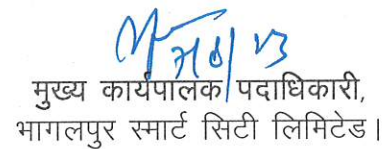 मुख्य कार्यपालक पदाधिकारी,
भागलपुर स्मार्ट सिटी लिमिटेड।